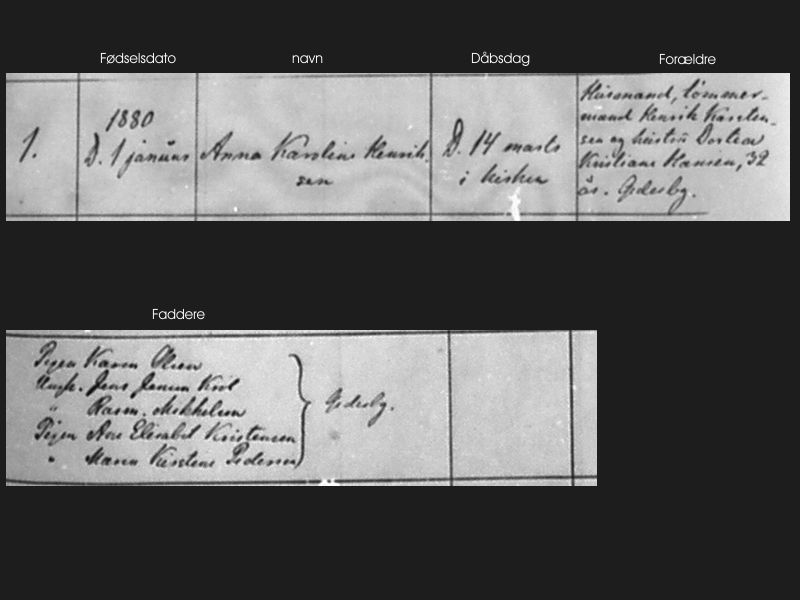 Fødselsdato navn Dåbsdag Forældre
1.
1880
D. 1 januar
Anna Karoline Henrik-
sen
D. 14 marts
i kirken
Huusmand, tømmer-
mand Henrik Karsten-
sen og hustru Dortea
Kristiane Hansen, 32
år. Gedesby.
Faddere
Pigen Karen Olsen
Ungk. Jens Jensen Krol
" Rasm. Mikkelsen
Pigen Ane Elisabet Kristensen
" Maren Kirstine Pedersen
Gedesby.